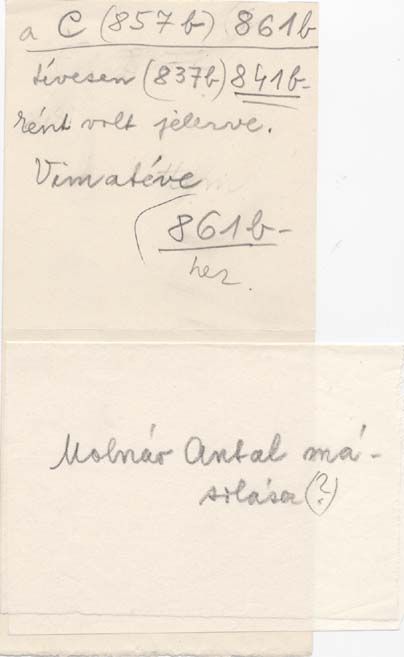 a C (857b) 861b
tévesen (837b) 841b-
ként volt jelezve.
861b-
hez.
Molnár Antal má-
solása (?)